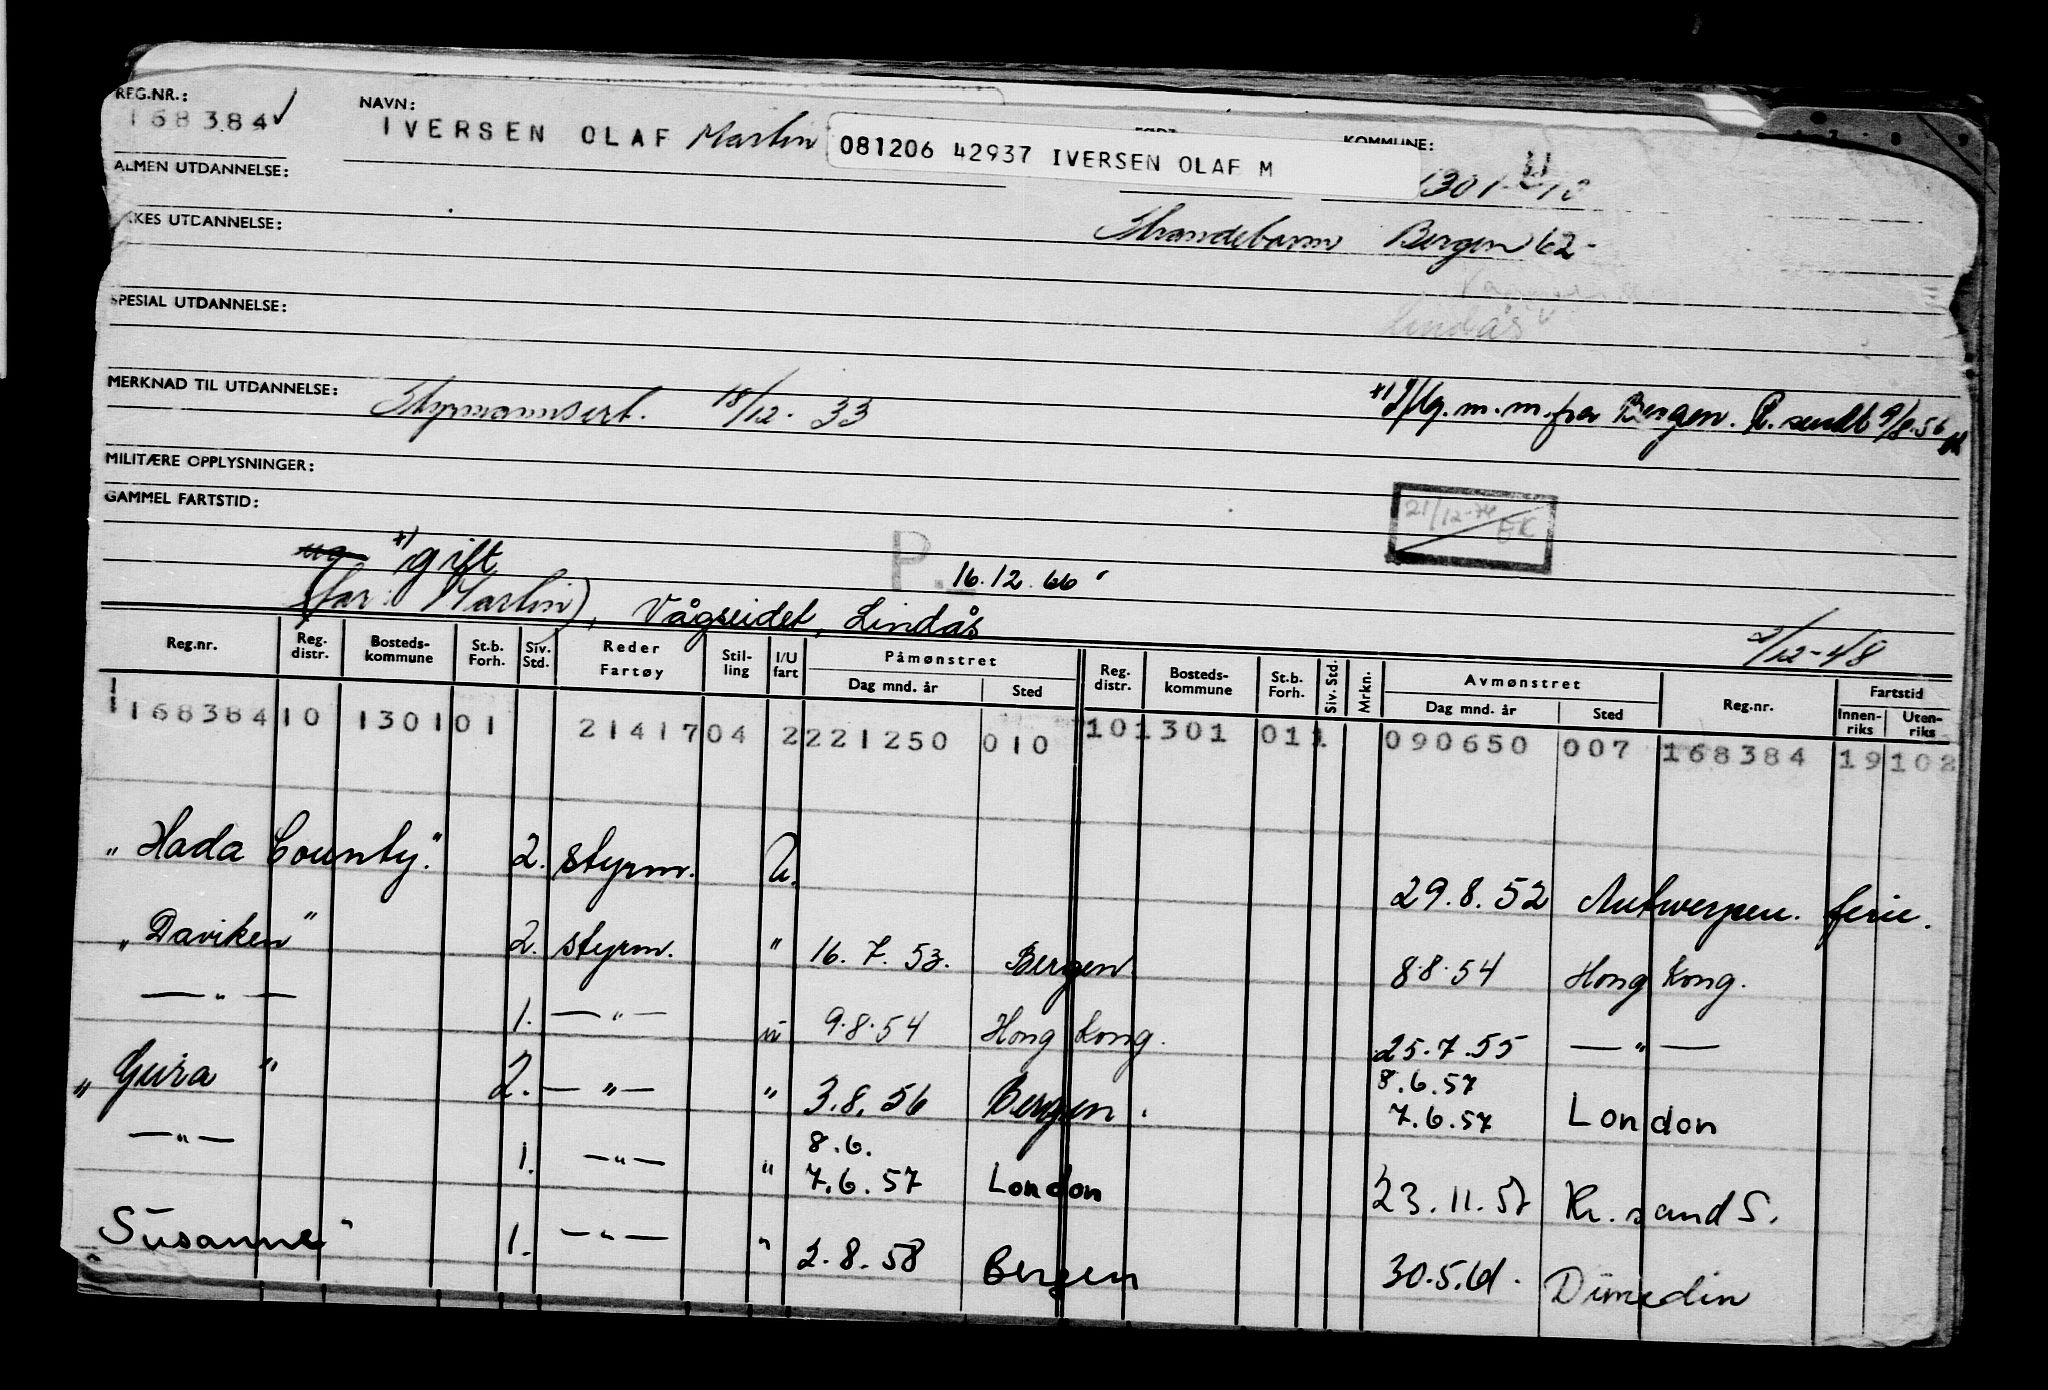 REG.NR.: NAVN: KOMMUNE:
168384 ✓ IVERSEN OLAF Martin 081206 42937 IVERSEN OLAF M
ALMEN UTDANNELSE: 1301
Strandebarm Bergen 62-
KES UTDANNELSE:
Lindås
SPESIAL UTDANNELSE:
MERKNAD TIL UTDANNELSE: Styrmannsert. 18/12-33
x) Iflg. m.m. fra Bergen. R. sendt 9/8-56
MILITÆRE OPPLYSNINGER:
GAMMEL FARTSTID:
21/12-74 EK
ug x) gift P. 16.12.66
(far: Martin), Vågseidet, Lindås
2/12-48
Reg.nr. Reg. distr. Bosteds-kommune St.b. Forh. Siv. Std. Reder Fartøy Stil-ling I/U fart Påmønstret Dag mnd. år Sted Reg. distr. Bosteds-kommune St.b. Forh. Siv. Std. Mrkn. Avmønstret Dag mnd. år Sted Reg.nr. Fartstid Innen-riks Uten-riks
168384 10 1301 01 21417 04 2 221250 010 10 1301 01 1 090650 007 168384 19 102
"Hada County" 2. styrm. U. 29.8.52 Antwerpen. ferie.
"Daviken" 2. styrm. " 16.7.53. Bergen 8.8.54 Hong Kong.
—"— 1. —"— u 9.8.54 Hong Kong. 25.7.55 —"—
"Gura" 2. —"— " 3.8.56 Bergen. 8.6.57 7.6.57 London
—"— 1. —"— " 8.6. 7.6.57 London 23.11.57 Kr.sand S.
Susanne" 1. —"— " 2.8.58 Bergen 30.5.61. Dunedin